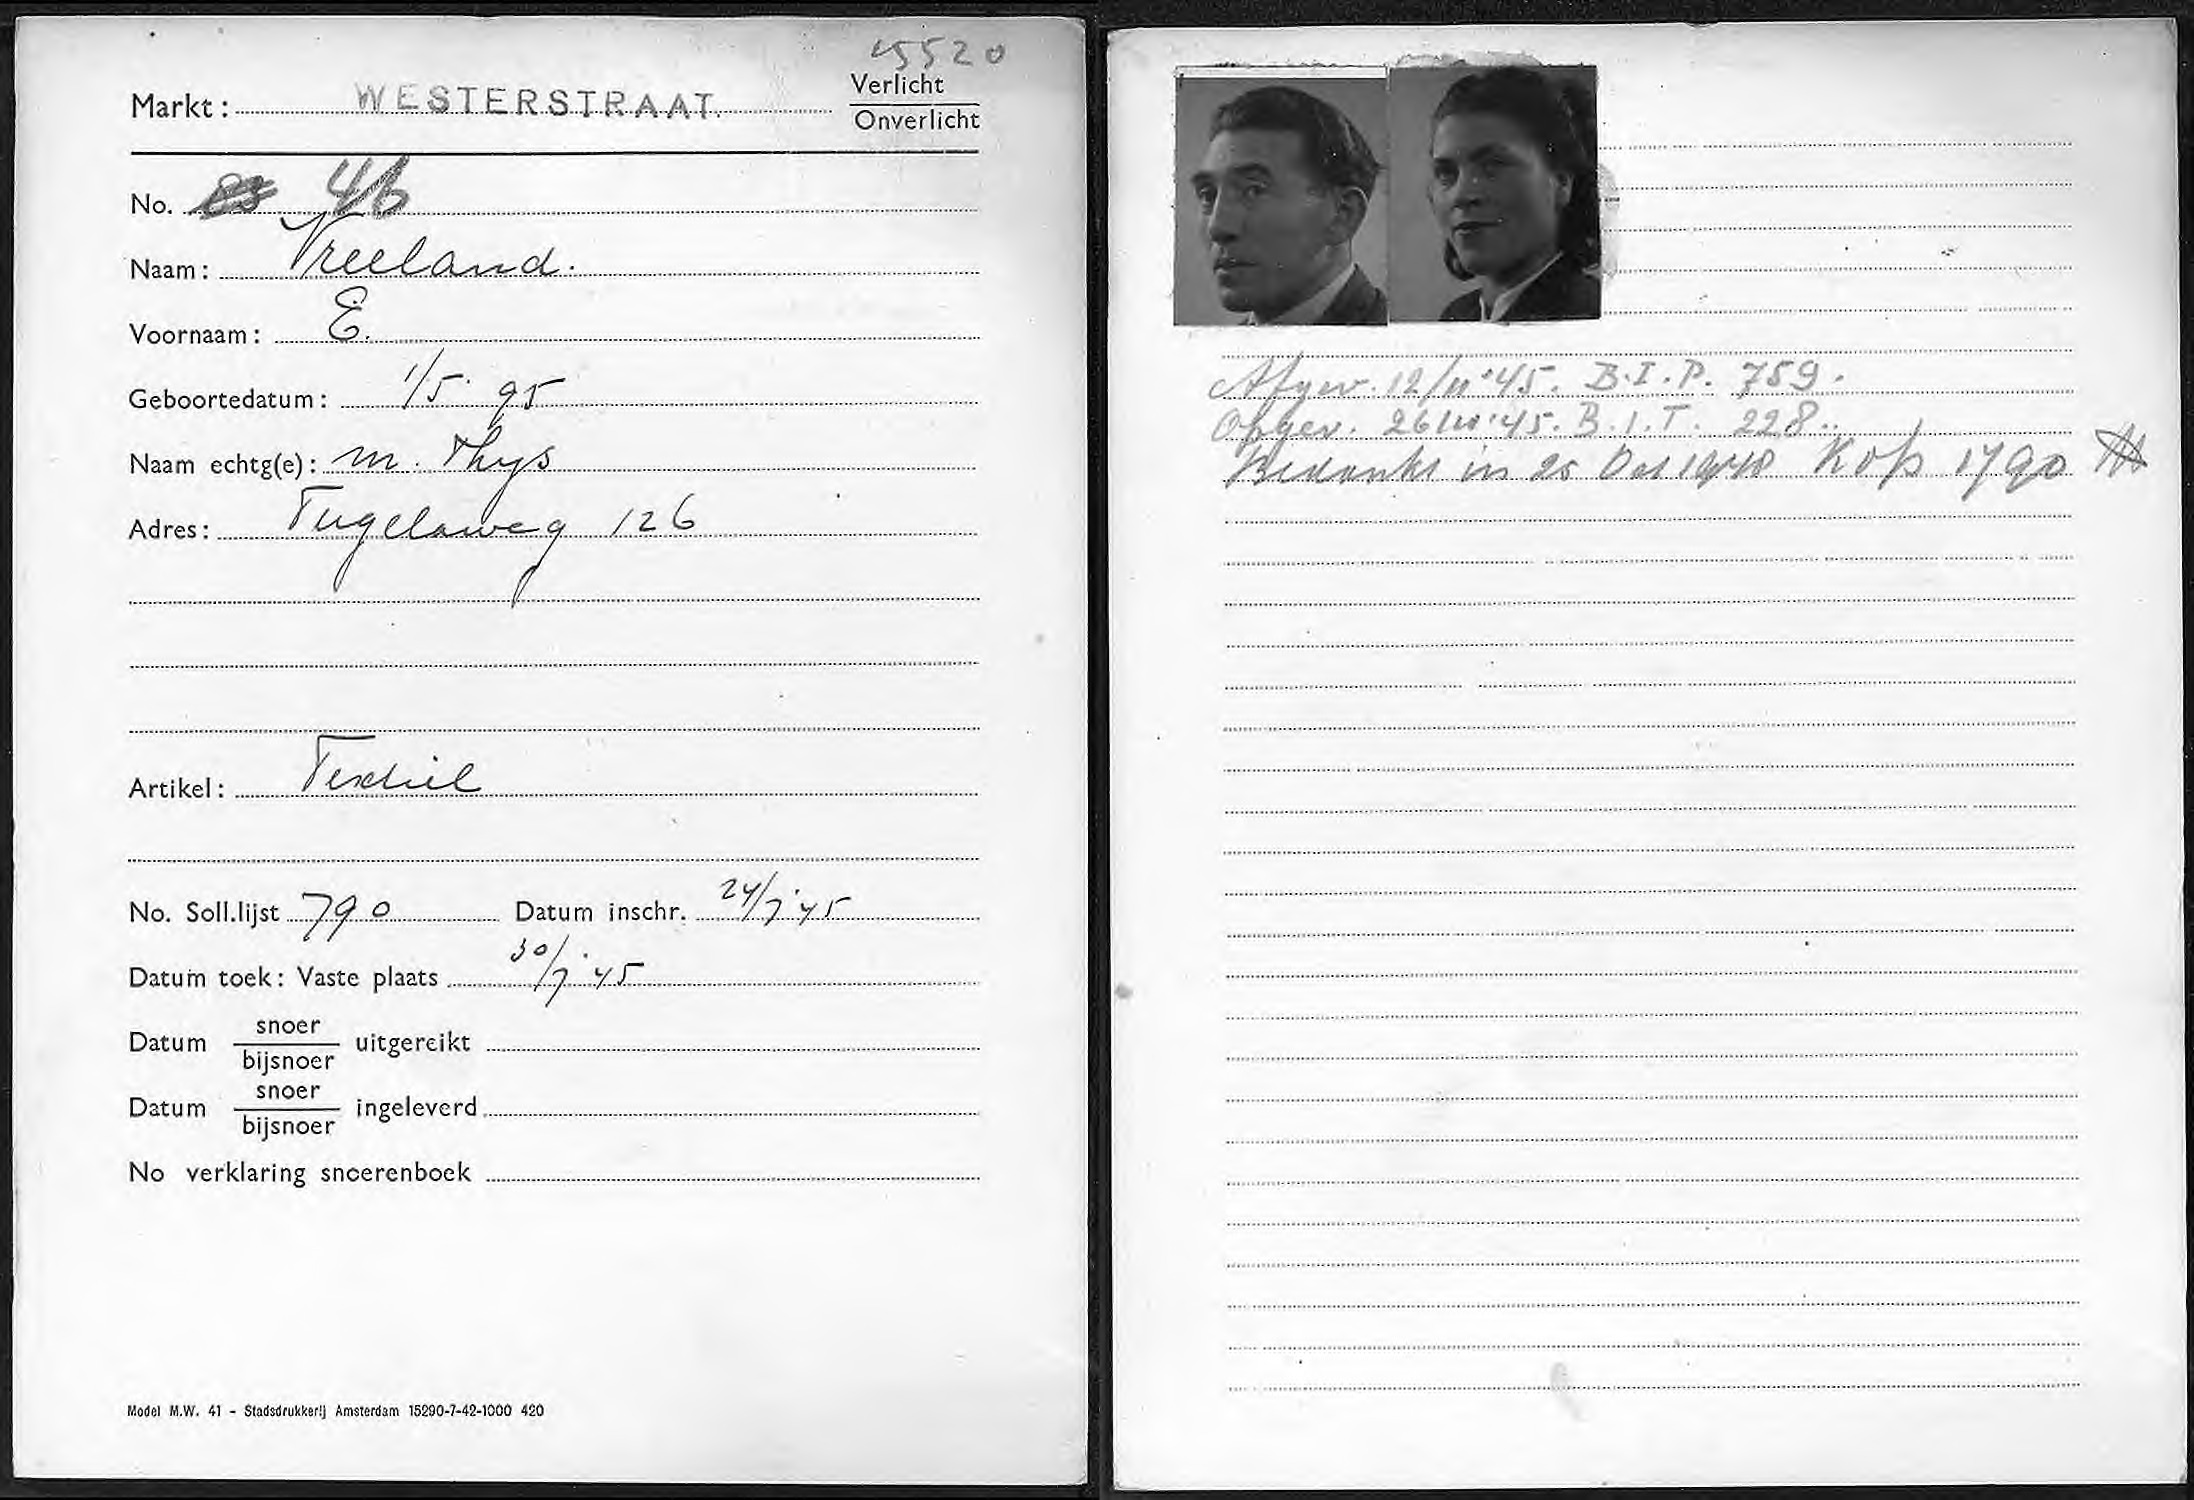 5520
Markt: WESTERSTRAAT.
Verlicht
Onverlicht
No. 46
Naam: Vreeland.
Voornaam: E.
Geboortedatum: 1/5 95
Naam echtg(e): M. Thys
Adres: Tugelaweg 126
Artikel: Textiel
No. Soll.lijst 790 Datum inschr. 24/7 '45
Datum toek: Vaste plaats 30/7 '45
Datum snoer/bijsnoer uitgereikt
Datum snoer/bijsnoer ingeleverd
No verklaring snoerenboek
Model M.W. 41 - Stadsdrukkerij Amsterdam 15290-7-42-1000 420
Afgev. 12/11 '45. B.I.P. 759.
Opgev. 26/11 '45. B.I.T. 228.
Bedankt in 25 Oct Kop 1790